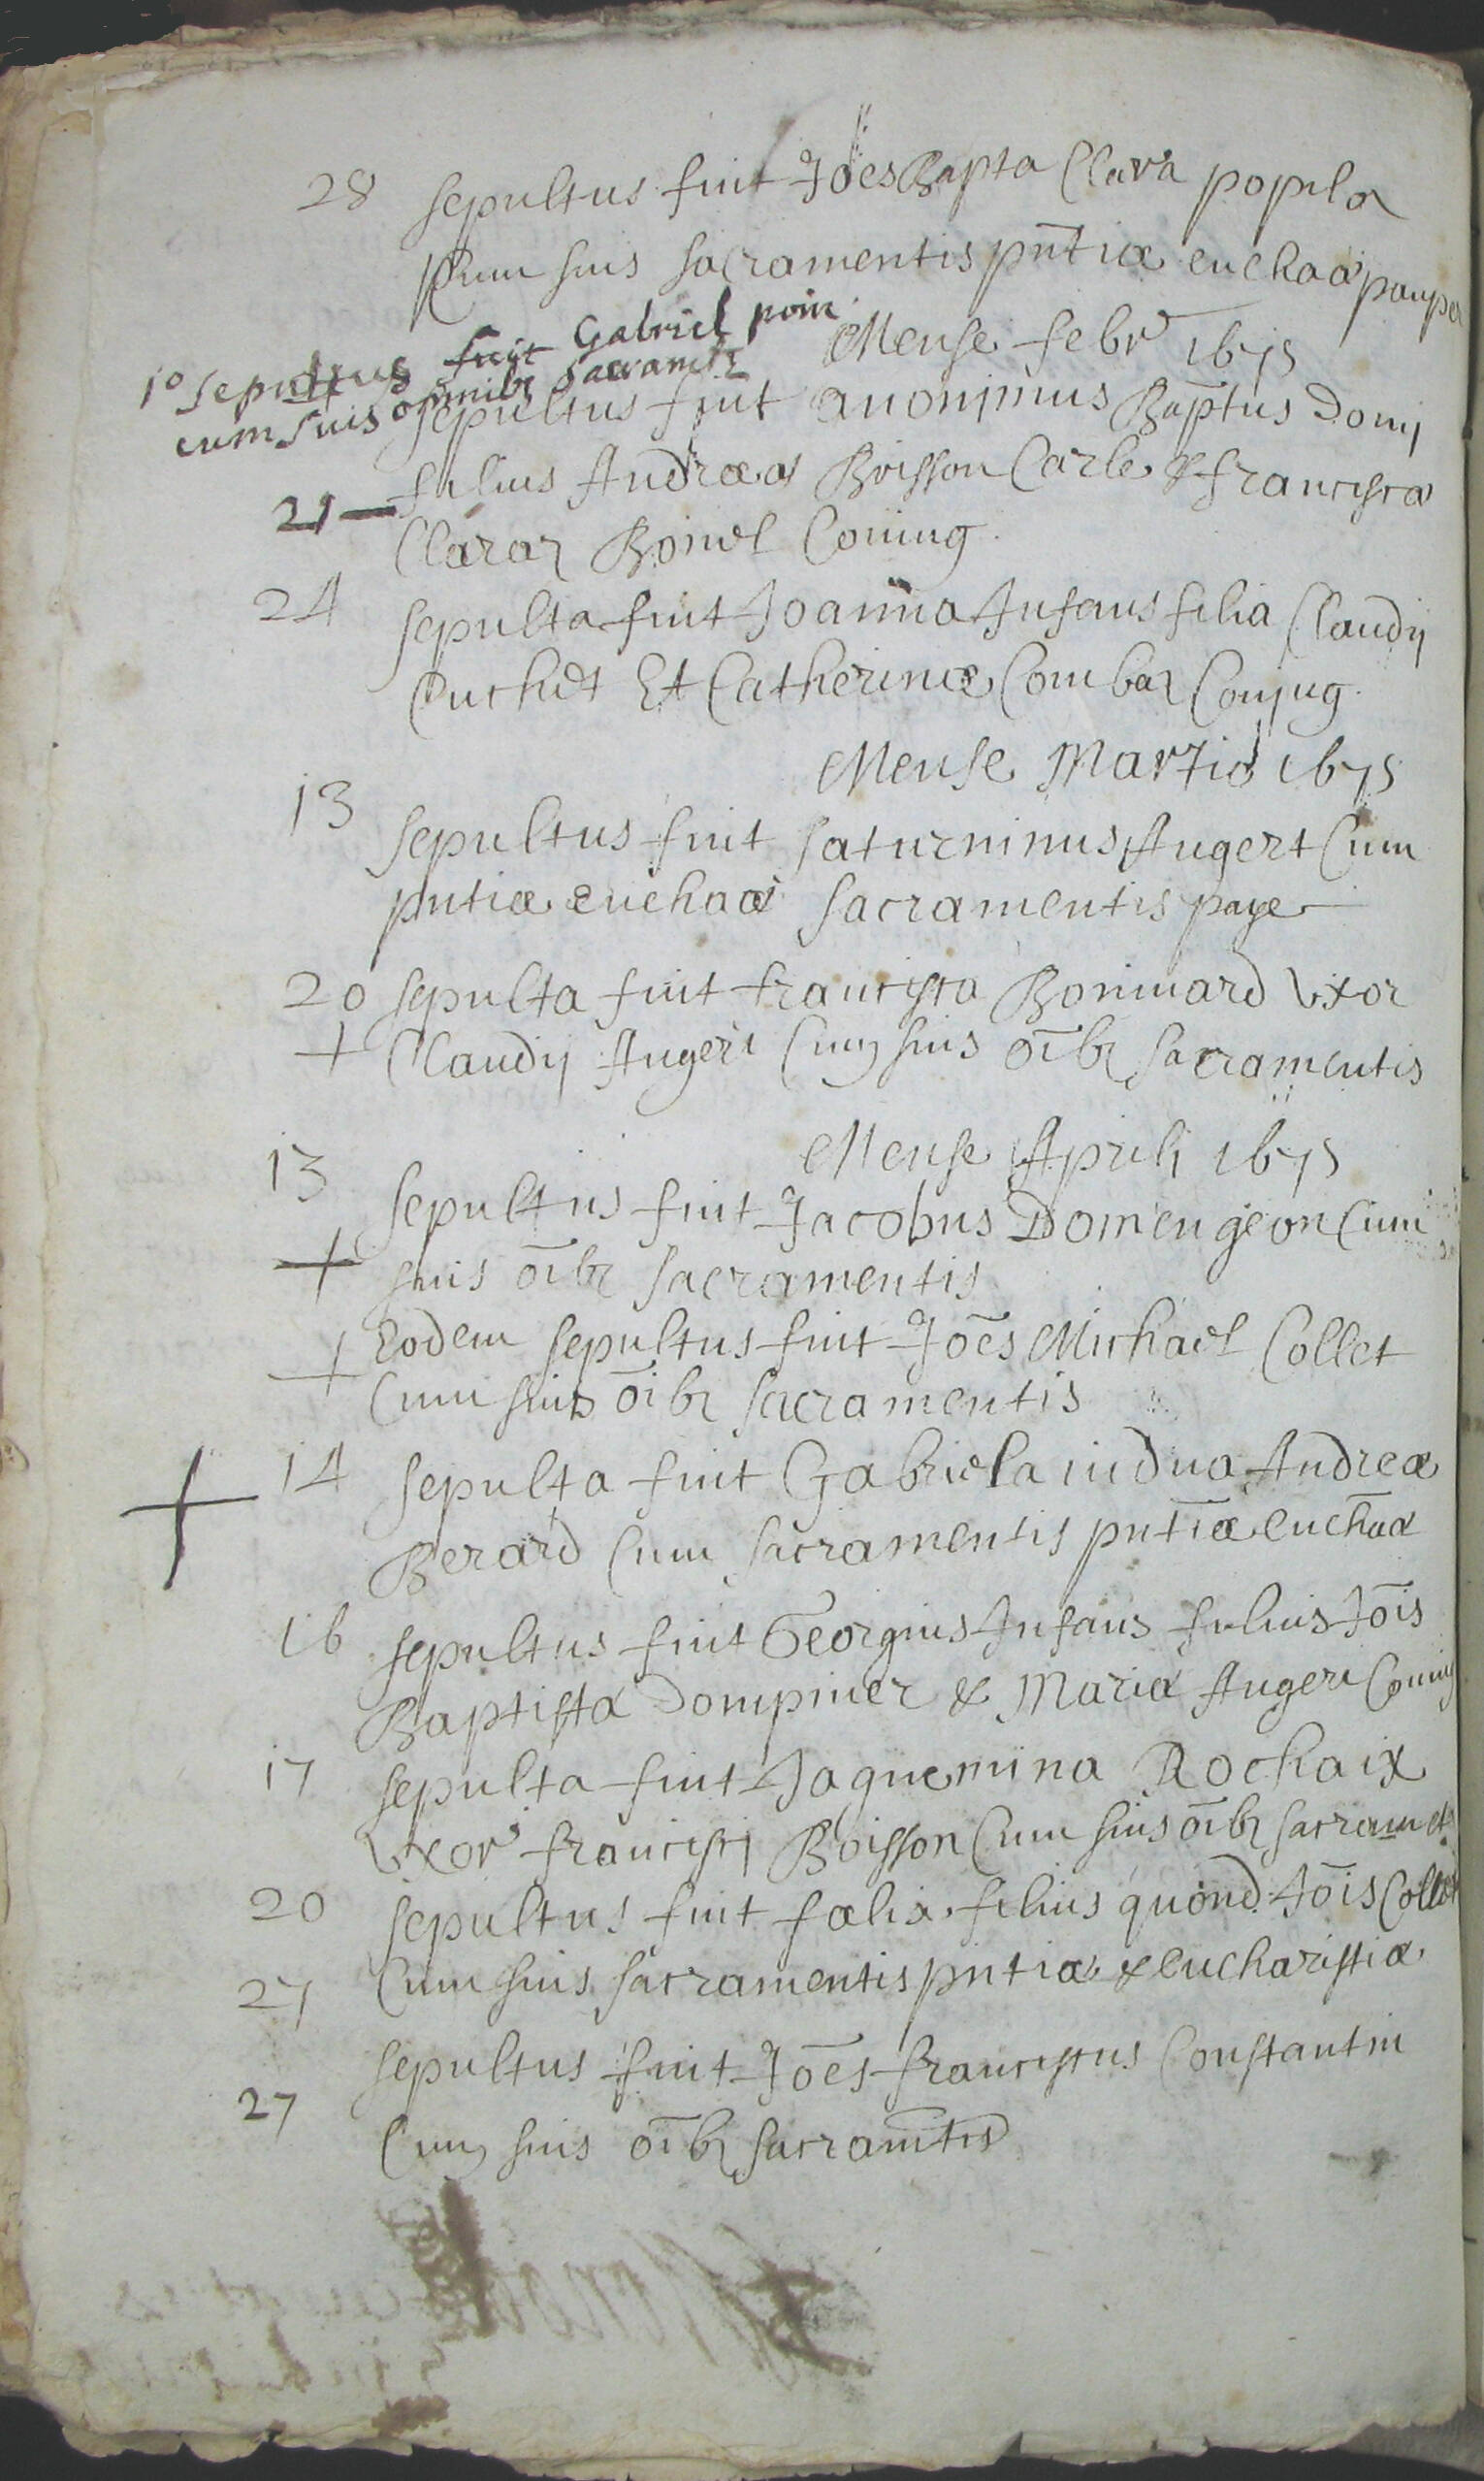 28 sepultus fuit Joes Bapta Clara popula
Cum suis sacramentis pntiæ euchaæ pauper
Mense febr 1675
10 sepultus fuit Gabriel poin
cum suis omnibz sacramtz
sepultus fuit anonimus Baptus Domj
21 filius Andreæ Boisson Carle & francisca
Claraz Boniel Coniug.
24 sepulta fuit Joanna Infans filia Claudij
Cuchet Et Catherinæ Combaz Conjug.
Mense Martio 1675
13 sepultus fuit saturninus Augert Cum
pntiæ euchaæ sacramentis paupe
20 sepulta fuit francisca Bonivard Uxor
+ Claudij Augert Cum suis oibz sacramentis
Mense Aprili 1675
13 sepultus fuit Jacobus Domengeon Cum
+ suis oibz sacramentis
+ Eodem sepultus fuit Joes Michael Collet
Cum suis oibz sacramentis
+ 14 sepulta fuit Gabriela vidua Andreæ
Berard Cum sacramentis pntiæ euchaæ
16 sepultus fuit Georgius Infans filius Jois
Baptista Dompnier & Maria Augert Coniug
17 sepulta fuit Jaquemina Rochaix
Uxor francisci Boisson Cum suis oibz sacramets
20 sepultus fuit fælix filius quond Jois Collet
27 Cum suis sacramentis pntiæ & eucharistiæ
sepultus fuit Joes franciscus Constantin
27
Cum suis oibz sacramtis